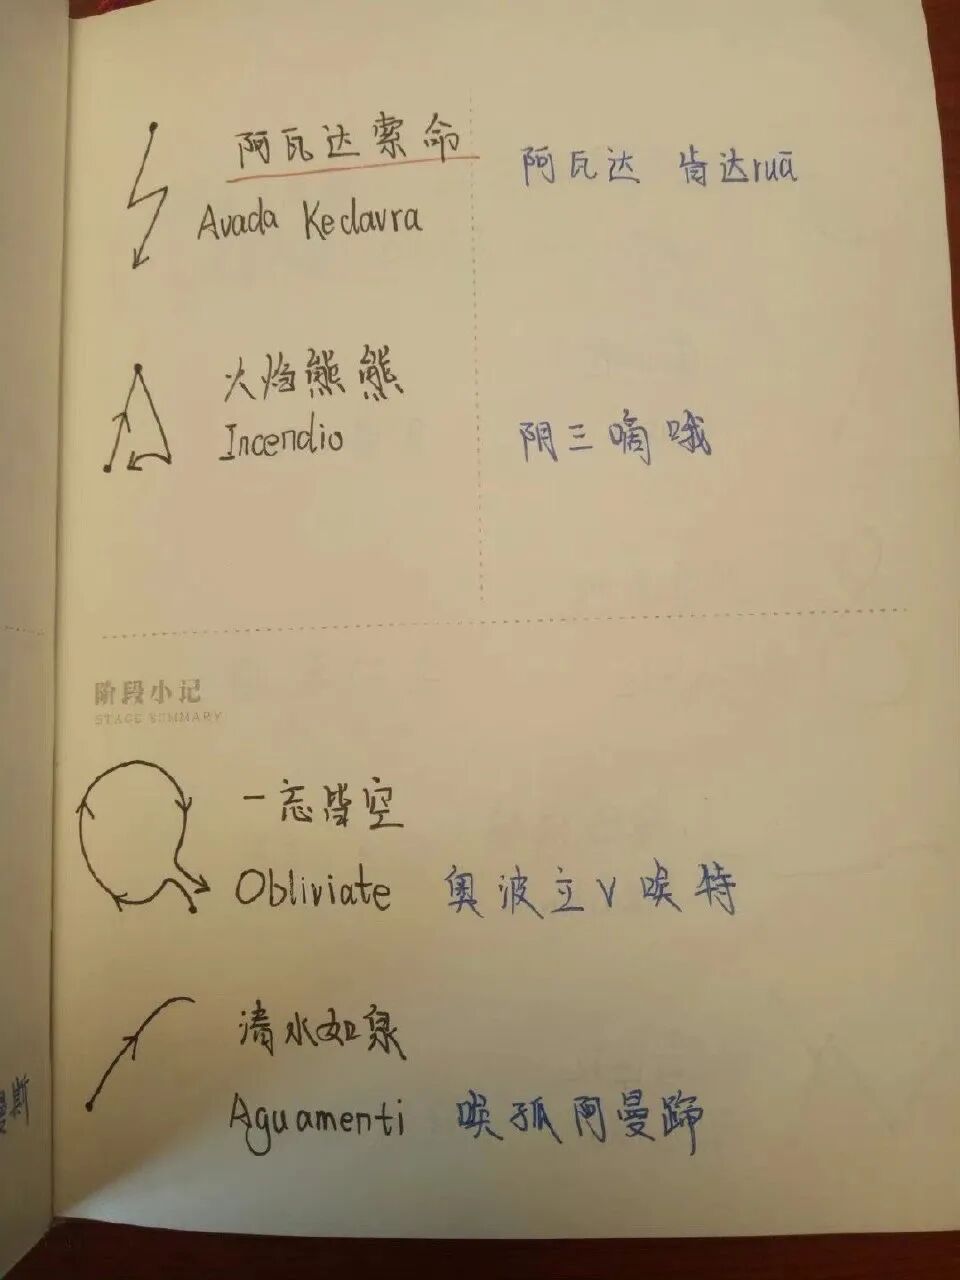 阿瓦达索命
阿瓦达 肯达ruā
Avada Kedavra
火焰熊熊
Incendio
阴三嘀哦
阶段小记
STAGE SUMMARY
一忘皆空
Obliviate 奥波立V唉特
清水如泉
Aguamenti 唉孤阿曼蹄
曼斯